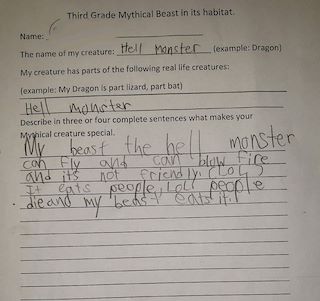 Third Grade Mythical Beast in its habitat.
Name:
The name of my creature: Hell monster (example: Dragon)
My creature has parts of the following real life creatures:
(example: My Dragon is part lizard, part bat)
Hell monster
Describe in three or four complete sentences what makes your
Mythical creature special.
My beast the hell monster
can fly and can blow fire
and it's not friendly. (LOL)
It eats people, LOL people
die and my beast eats it.